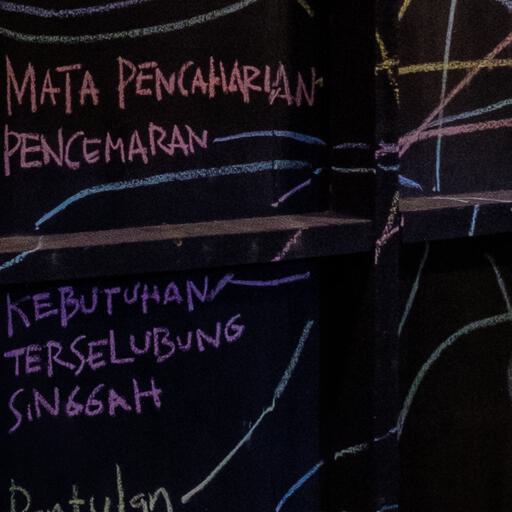 MATA PENCAHARIAN
PENCEMARAN
KEBUTUHAN
TERSELUBUNG
SINGGAH
Pantulan